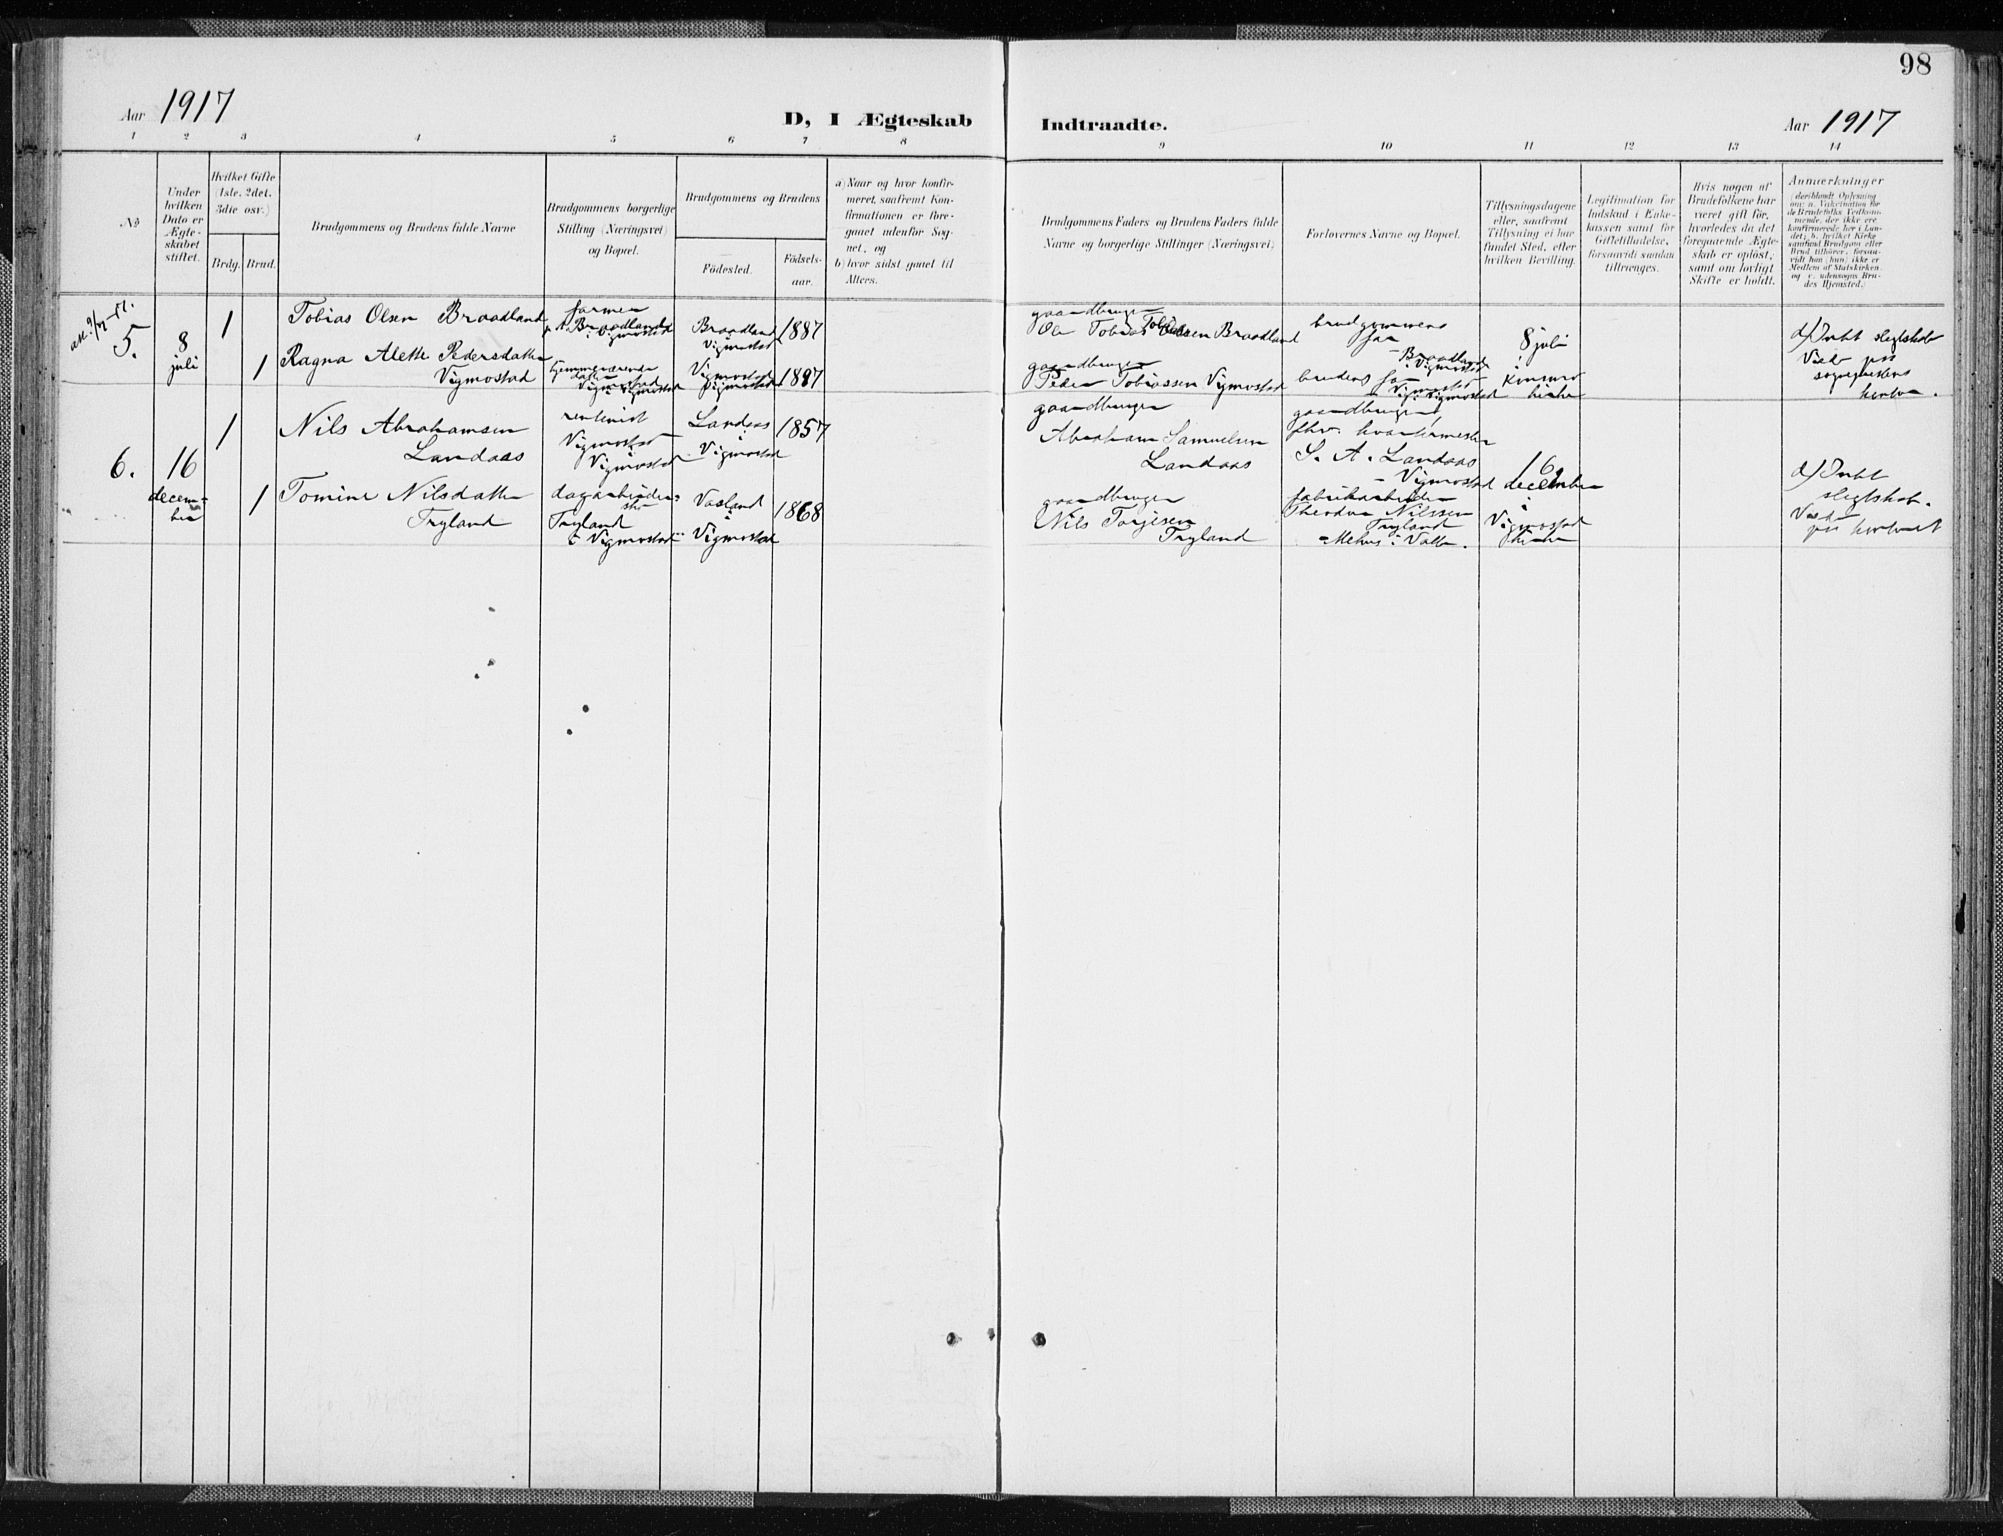 98
Aar 1917
D, I Ægteskab Indtraadte.
Aar 1917
1 2 3 4 5 6 7 8 9 10 11 12 13 14
No
Under hvilken Dato er Ægteskabet stiftet.
Hvilket Gifte (1ste, 2det, 3die osv.)
Brdg. Brud.
Brudgommens og Brudens fulde Navne
Brudgommens borgerlige Stilling (Næringsvei) og Bopæl.
Brudgommens og Brudens
Fødested.
Fødselsaar.
a) Naar og hvor konfirmeret, saafremt Konfirmationen er foregaaet udenfor Sognet, og
b) hvor sidst gaaet til Alters.
Brudgommens Faders og Brudens Faders fulde Navne og borgerlige Stillinger (Næringsvei)
Forlovernes Navne og Bopæl.
Tillysningsdagene eller, saafremt Tillysning ei har fundet Sted, efter hvilken Bevilling.
Legitimation for Indskud i Enkekassen samt for Giftetilladelse, forsaavidt saadan tiltrænges.
Hvis nogen af Brudefolkene har været gift før, hvorledes da det foregaaende Ægteskab er opløst; samt om lovligt Skifte er holdt.
Anmærkninger
5.
8 juli
1
Tobias Olsen Braadland
farmer
Braadland i Vigmostad
Braadland Vigmostad
1887
gaardbruger
Ole Tobias Tobiassen Braadland
brudgommens far
Braadland Vigmostad
8 juli i kirke
a) Intet slegtskab
1
Ragna Alette Pedersdatter
Vigmostad
hjemmeværende datter
Vigmostad i Vigmostad
Vigmostad Vigmostad
1897
gaardbruger
Peder Tobiassen Vigmostad
brudens far
Vigmostad i Vigmostad
6.
16 december
1
Nils Abrahamsen
Landaas
rentenist
Vigmostad
Vigmostad
Landaas i Vigmostad
1857
gaardbruger
Abraham Samuelsen
Landaas
gaardbruger,
fhv. kvartermester
S. A. Landaas
Vigmostad
16 december
i Vigmostad kirke
a) Intet
slegtskab.
1
Tomine Nilsdatter
Tryland
dagarbeiderske
Tryland
i Vigmostad
Vasland i Vigmostad
1868
gaardbruger
Nils Torjesen
Tryland
fabrikarbeider
Theodor Nilssen
Tryland
Mehus i Valle.